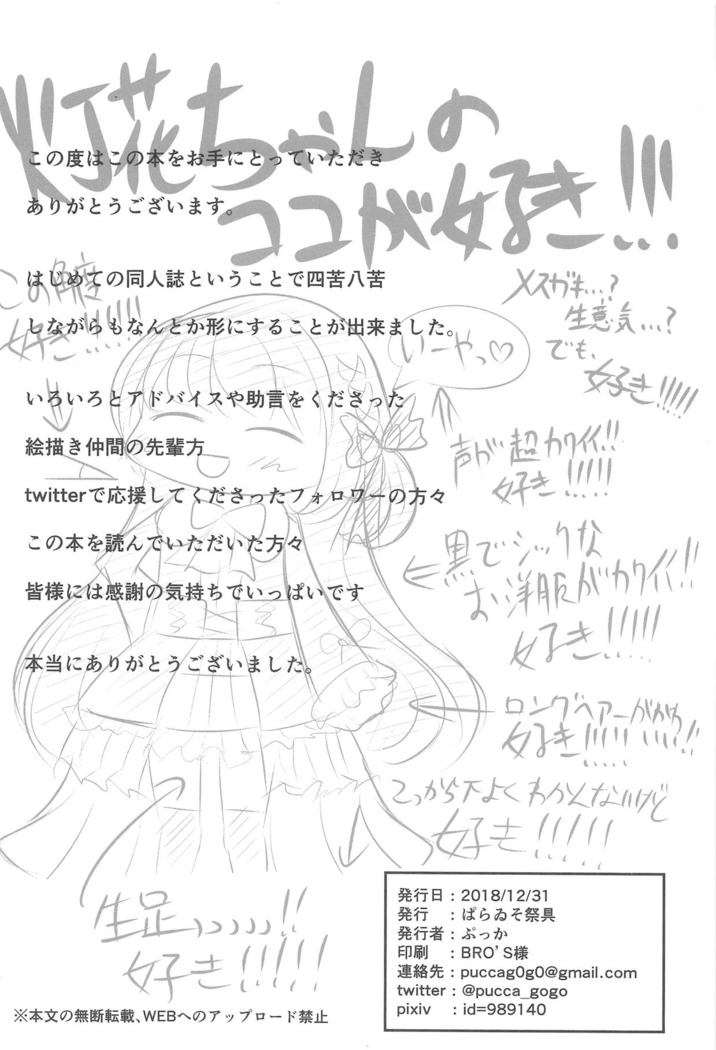 灯花ちゃんの
ココが好き!!!
この度はこの本をお手にとっていただき
ありがとうございます。
はじめての同人誌ということで四苦八苦
しながらもなんとか形にすることが出来ました。
いろいろとアドバイスや助言をくださった
絵描き仲間の先輩方
twitterで応援してくださったフォロワーの方々
この本を読んでいただいた方々
皆様には感謝の気持ちでいっぱいです
本当にありがとうございました。
この角度
好き!!!!!
いーやっ♡
メスガキ…?
生意気…?
でも、
好き!!!!!
声が超カワイイ!!
好き!!!!!
黒でシックな
お洋服がカワイイ!!
好き!!!!!
ロングヘアーがかわ
好き!!!!! !!!!!
こっから下よくわかんないけど
好き!!!!!
生足ッッッ!!
好き!!!!!
発行日：2018/12/31
発行　：ぱらゐそ祭具
発行者：ぷっか
印刷　：BRO'S様
連絡先：puccag0g0@gmail.com
twitter：@pucca_gogo
pixiv　：id=989140
※本文の無断転載、WEBへのアップロード禁止